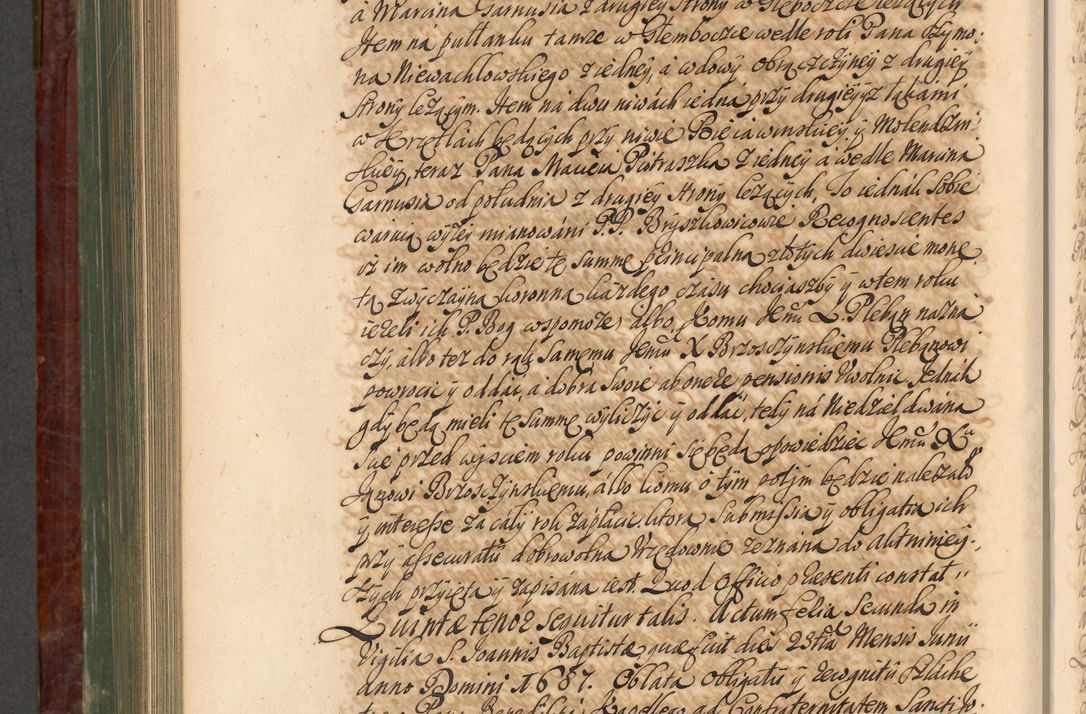 a Marcina Garnusia z drugiey strony w Głęboczce leżących
Item na pułłanku tamże w Glemboczce wedle roli Pana Szymo:
na Niewachlowskiego z iedney, a wdowy Obrączczyney z drugiey
strony leżącym. Item na dwu niwach iedna przy drugiey z łąkami
w krzętlach będących przy niwie Pięciawinskiey y Molendzin:
skiey, teraz Pana Macieia Piotraszka z iedney a wedle Marcina
Garnusia od południa z drugiey strony leżących. To iednak sobie
waruią wyżey mianowani P.P. Bryszkowicowie Recognoscentes
iż im wolno będzie tę summę principalną złotych dwiescie mone
tą zwyczayną koronną każdego czasu chociaszby y w tem roku
ieżeli ich P. Bog wspomoże, albo komu Jemu X. Pleban nazna
czy, albo też do rąk samemu Jemu X Brzosczynskiemu Plebanowi
powrocić y oddać, a dobra swoie ab onere pensionis uwolnić. Jednak
gdy będą mieli tę summę wyliczyć y oddać, tedy na Niedziel dwana
scie przed wysciem roku powinni się będą opowiedzieć Jemu Xu
Janowi Brzosczynskiemu, albo komu o tym potym będzie należało
y interesse za cały rok zapłacić, ktora submissia y obligatia ich
przy assecuratii dobrowolna Urzędownie zeznana do Akt niniey-
szych przyięta y zapisana iest. Quod Officio praesenti constat.
Quintae tenor sequitur talis. Actum feria secunda in
Vigilia S. Joannis Baptistae quae fuit dies 23tia Mensis Junii
anno Domini 1687. Oblata Obligatii y recognitii szlache
ad Confraternitatem Sancti Jo: